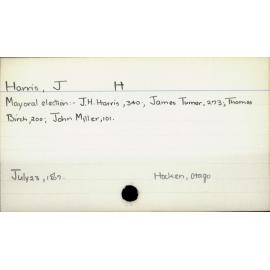 Harris, J H
Mayoral election:- J.H. Harris, 340; James Turner, 273; Thomas
Birch, 200; John Miller, 101.
July 23, 1867. Hocken, Otago